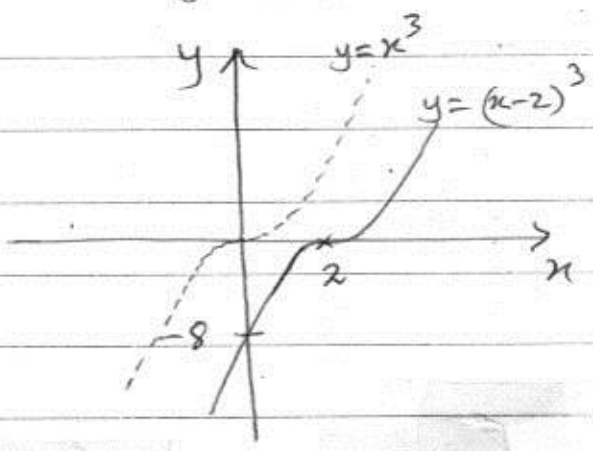 y
y=x³
y=(x-2)³
2
x
-8